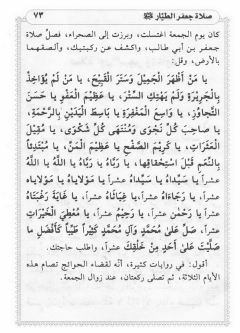 صلاة جعفر الطيّار ٧٣
كان يوم الجمعة اغتسلت، وبرزت إلى الصحراء، فصلّ صلاة
جعفر بن أبي طالب، واكشف عن ركبتيك، وألصقهما
بالأرض، وقل:
يا مَنْ أظهَرَ الْجَميلَ وَسَتَرَ الْقَبيحَ، يا مَنْ لَمْ يُؤاخِذْ
بِالْجَريرَةِ وَلَمْ يَهتِكِ السِّتْرَ، يا عَظيمَ الْعَفْوِ يا حَسَنَ
التَّجاوُزِ، يا واسِعَ الْمَغْفِرَةِ يا باسِطَ الْيَدَيْنِ بِالرَّحْمَةِ،
يا صاحِبَ كُلِّ نَجْوى وَمُنْتَهى كُلِّ شَكْوى، يا مُقيلَ
الْعَثَراتِ، يا كَريمَ الصَّفْحِ يا عَظيمَ الْمَنِّ، يا مُبْتَدِئاً
بِالنِّعَمِ قَبْلَ اسْتِحْقاقِها، يا رَبّاهُ يا رَبّاهُ يا اَللّهُ يا اَللّهُ
عشراً يا سَيِّداهُ يا سَيِّداهُ عشراً، يا مَوْلاياهُ يا مَوْلاياه
عشراً، يا رَجاءَاهُ عشراً، يا غِياثاهُ عشراً، يا غايَةَ رَغْبَتاهُ
عشراً يا رَحْمنُ عشراً، يا رَحيمُ عشراً، يا مُعْطِيَ الْخَيْراتِ
عشراً، صَلِّ عَلى مُحَمَّدٍ وَآلِ مُحَمَّدٍ كَثيراً طَيِّباً كَأَفْضَلِ ما
صَلَّيْتَ عَلى أَحَدٍ مِنْ خَلْقِكَ عشراً، واطلب حاجتك.
أقول: في روايات كثيرة، أنّه لقضاء الحوائج تصام هذه
الأيام الثلاثة، ثم تصلى ركعتان، عند زوال الجمعة.